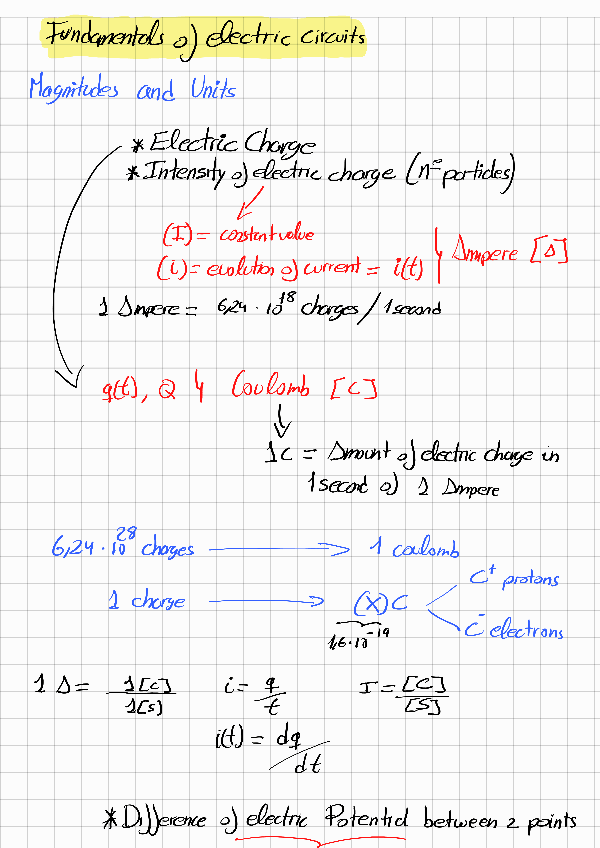 Fundamentals of electric circuits
Magnitudes and Units
* Electric Charge
* Intensity of electric charge (nº particles)
(I) = constant value
(i) = evolution of current = i(t)
Ampere [A]
1 Ampere = 6,24 · 10^18 charges / 1 second
q(t), Q Coulomb [C]
1C = Amount of electric charge in
1 second of 1 Ampere
6,24 · 10^28 charges → 1 coulomb
C⁺ protons
1 charge → (X) C
C⁻ electrons
1,6 · 10^-19
1 A = 1[C] / 1[S] i = q / t I = [C] / [S]
i(t) = dq / dt
* Difference of electric Potential between 2 points